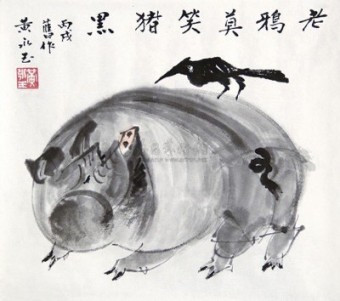 老鸦莫笑猪黑
丙戌
旧作
黄永玉